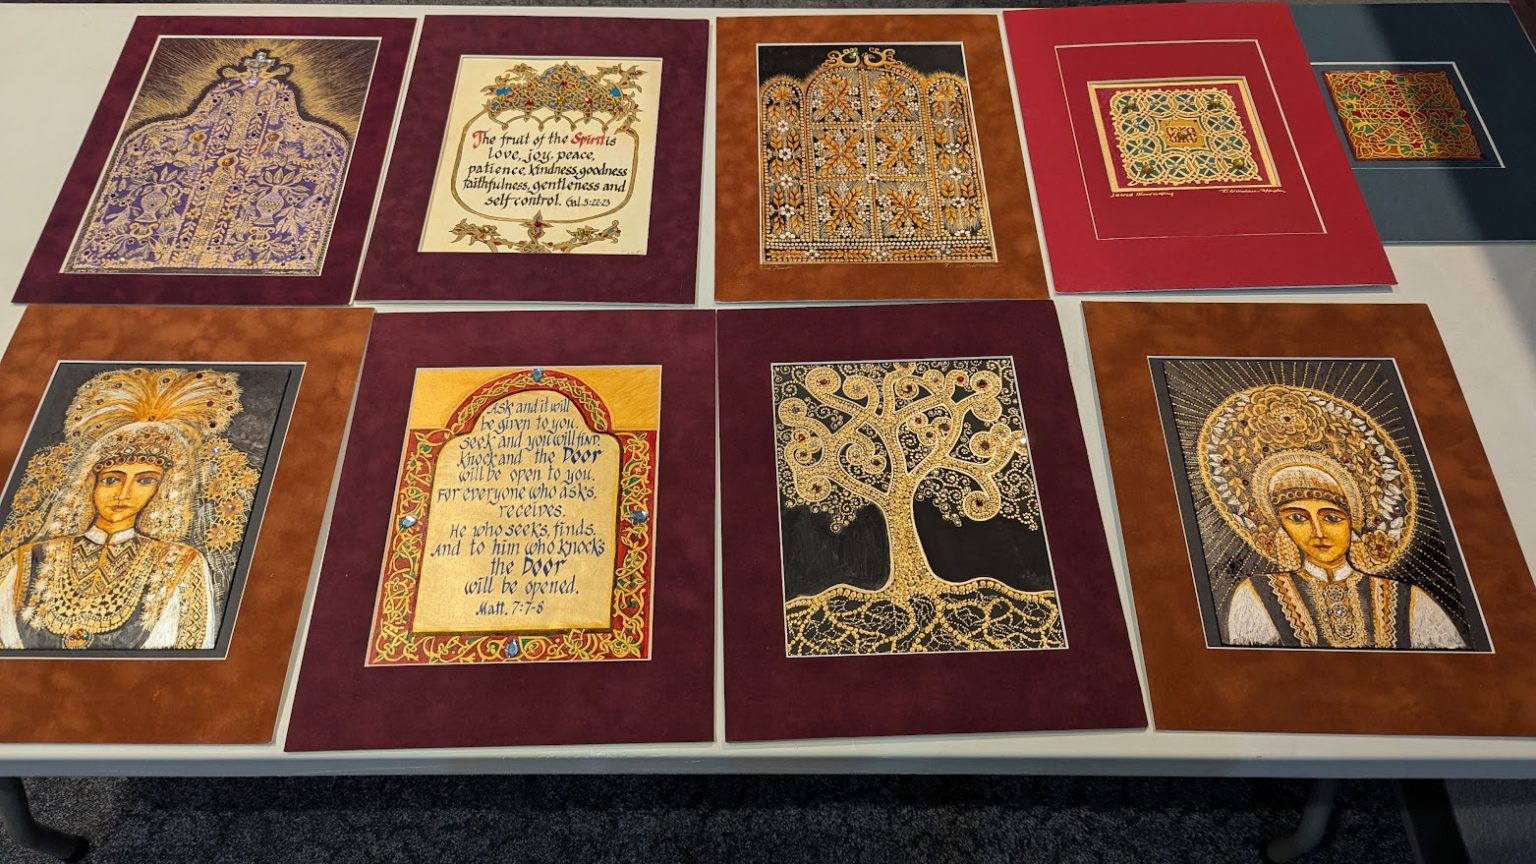 The fruit of the Spirit is
love, joy, peace,
patience, kindness, goodness
faithfulness, gentleness and
self-control. Gal. 5:22-23
Ask and it will
be given to you.
Seek and you will find.
Knock and the Door
will be open to you.
For everyone who asks,
receives.
He who seeks, finds.
And to him who knocks
the Door
will be opened.
Matt. 7:7-8